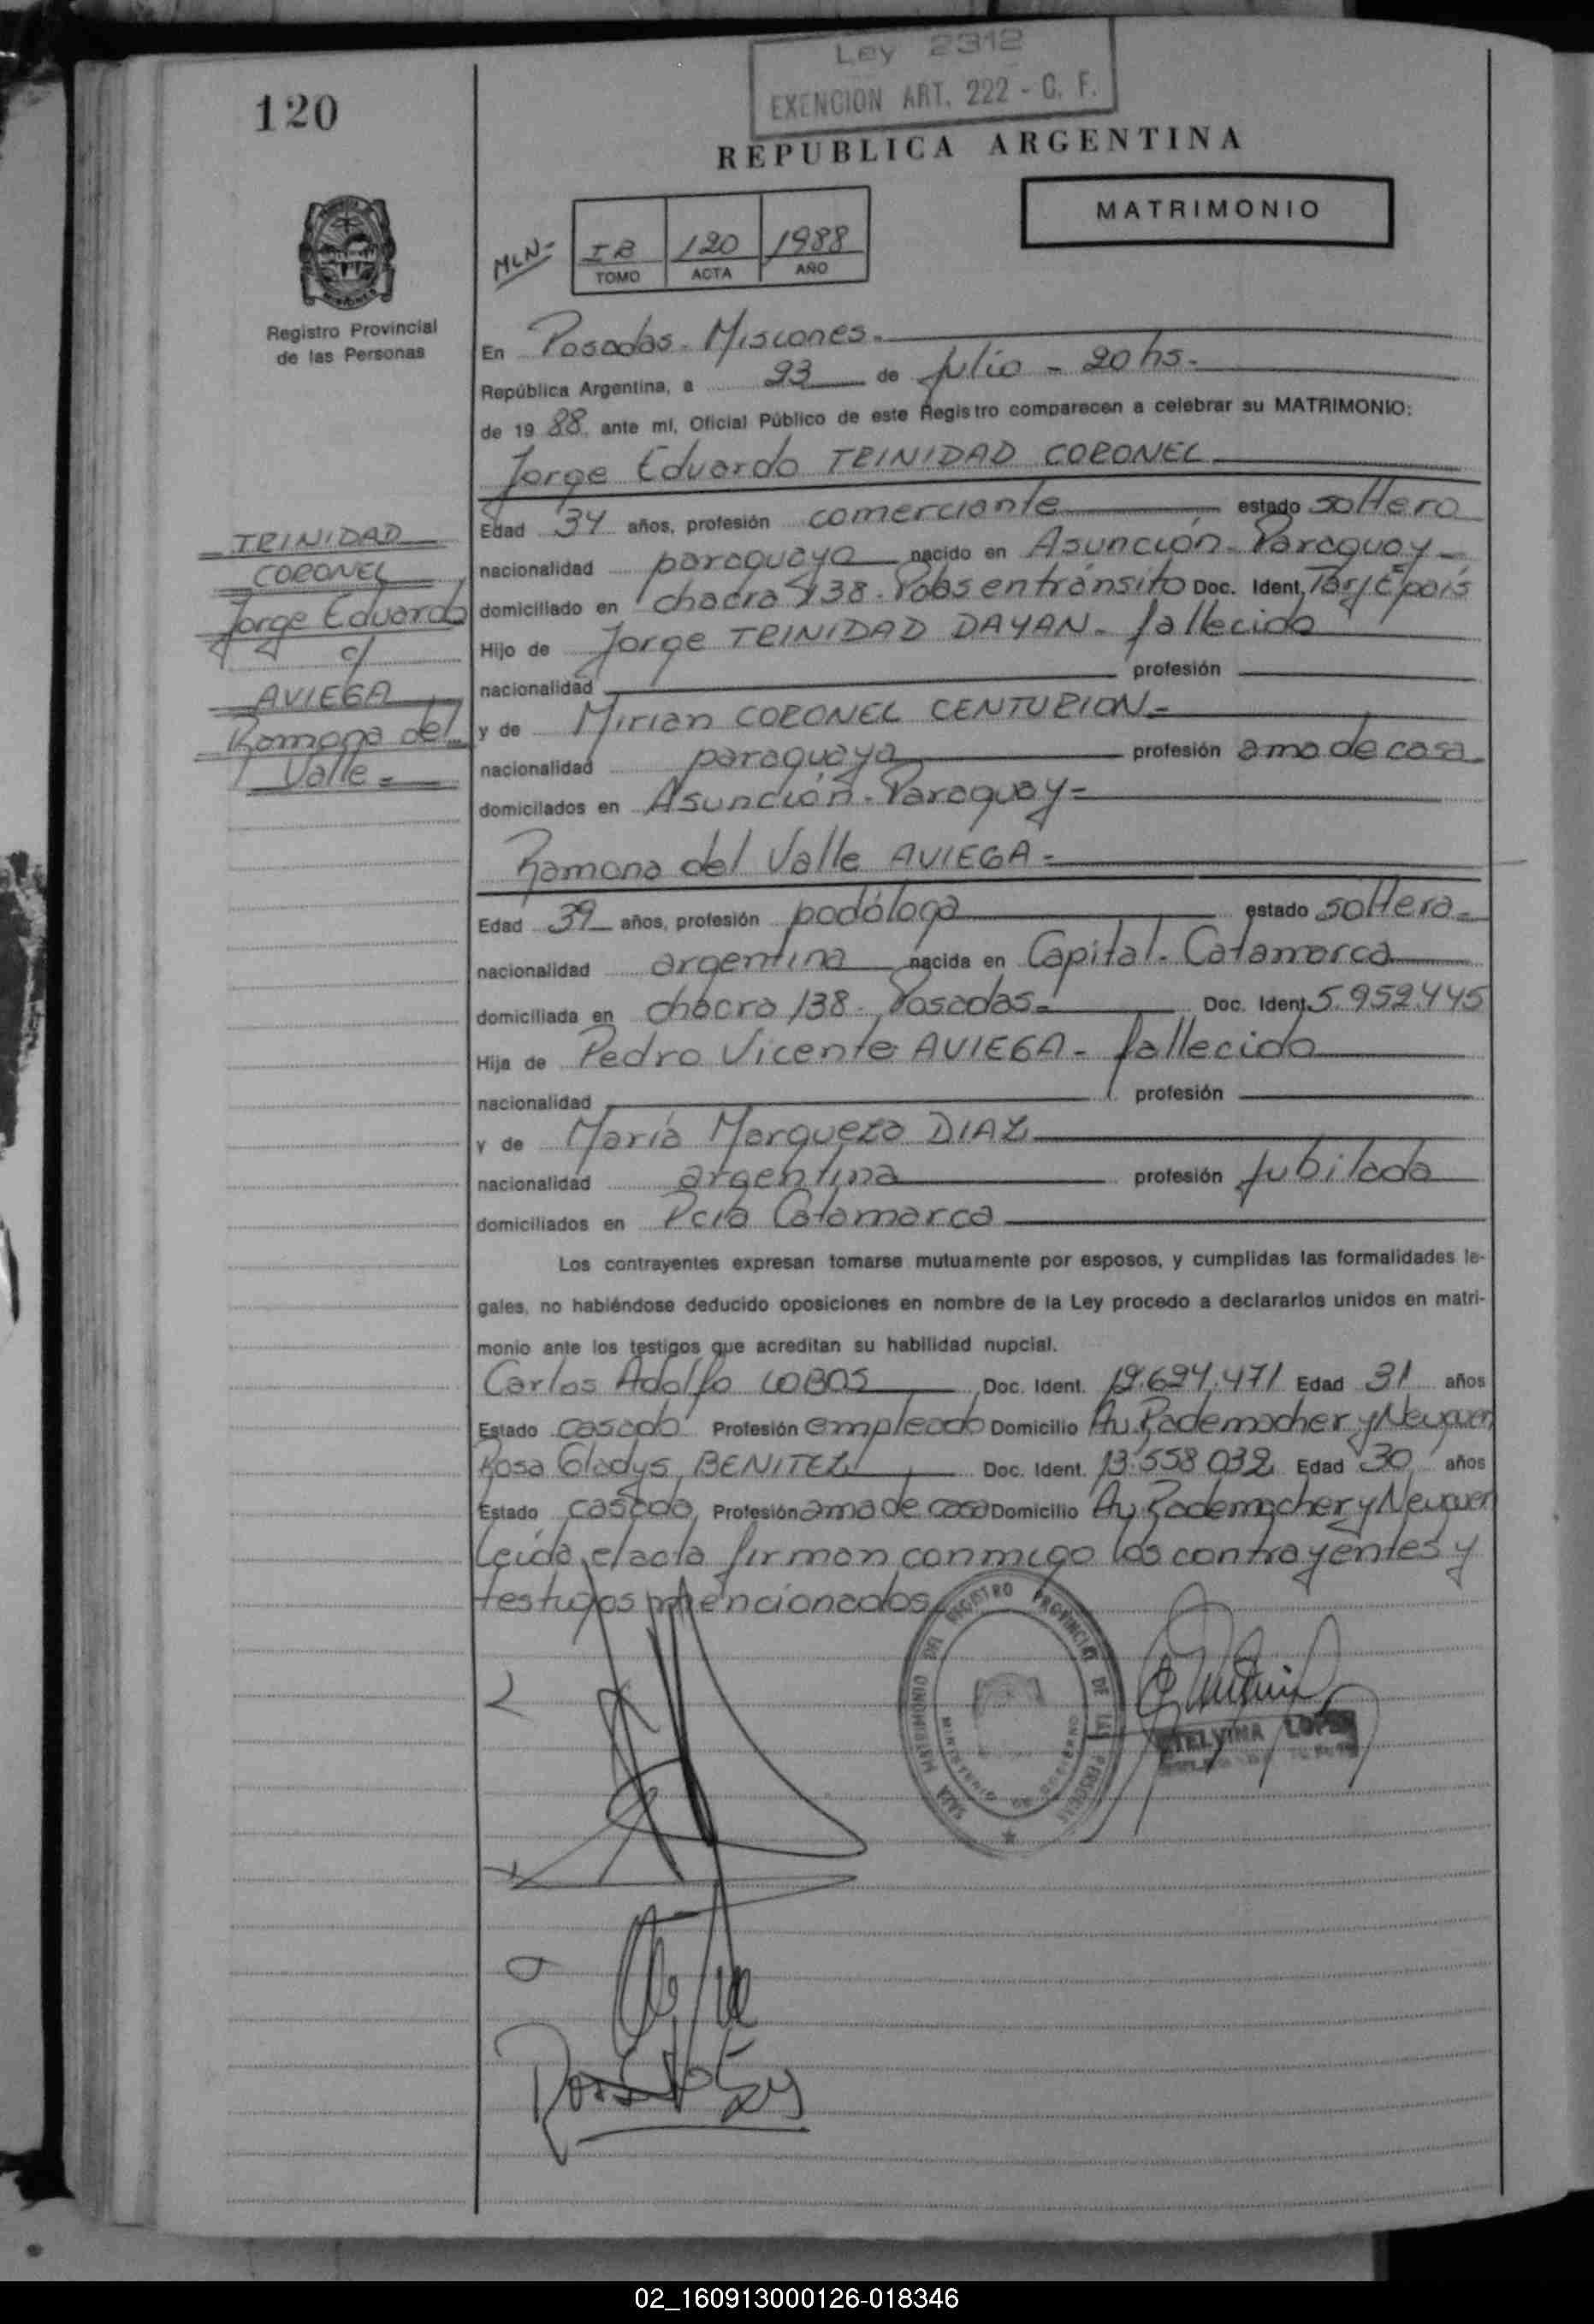 Ley 2312
EXENCION ART. 222 - C. F.
120
REPUBLICA ARGENTINA
MATRIMONIO
MLN-
IB 120 1988
TOMO ACTA AÑO
Registro Provincial
de las Personas
En Posadas - Misiones.
República Argentina, a 23 de Julio - 20 hs.
de 19 88, ante mí, Oficial Público de este Registro comparecen a celebrar su MATRIMONIO:
Jorge Eduardo TRINIDAD CORONEL
Edad 34 años, profesión comerciante estado soltero
nacionalidad paraguaya nacido en Asunción - Paraguay -
domiciliado en chacra 138 - Pdas en tránsito Doc. Ident. Tarj E país
Hijo de Jorge TRINIDAD DAYAN - fallecido
nacionalidad profesión
y de Mirian CORONEL CENTURION -
nacionalidad paraguaya profesión ama de casa
domicilados en Asunción - Paraguay -
TRINIDAD
CORONEL
Jorge Eduardo
c/
AVIEGA
Ramona del
Valle -
Ramona del Valle AVIEGA -
Edad 39 años, profesión podóloga estado soltera -
nacionalidad argentina nacida en Capital - Catamarca
domiciliada en chacra 138 - Posadas - Doc. Ident. 5.952.445
Hija de Pedro Vicente AVIEGA - fallecido
nacionalidad profesión
y de María Marqueza DIAZ
nacionalidad argentina profesión Jubilada
domiciliados en Pcia Catamarca
Los contrayentes expresan tomarse mutuamente por esposos, y cumplidas las formalidades le-
gales, no habiéndose deducido oposiciones en nombre de la Ley procedo a declararlos unidos en matri-
monio ante los testigos que acreditan su habilidad nupcial.
Carlos Adolfo LOBOS Doc. Ident. 12.694.471 Edad 31 años
Estado casado Profesión empleado Domicilio Av. Rademacher y Neuquen
Rosa Gladys BENITEZ Doc. Ident. 13.558.032 Edad 30 años
Estado casada Profesión ama de casa Domicilio Av. Rademacher y Neuquen
Leída el acta firman conmigo los contrayentes y
testigos mencionados
SALA MATRIMONIO DEL REGISTRO PROVINCIAL DE LAS PERSONAS
MINISTERIO DE GOBIERNO
ETELVINA LOPEZ
02_160913000126-018346